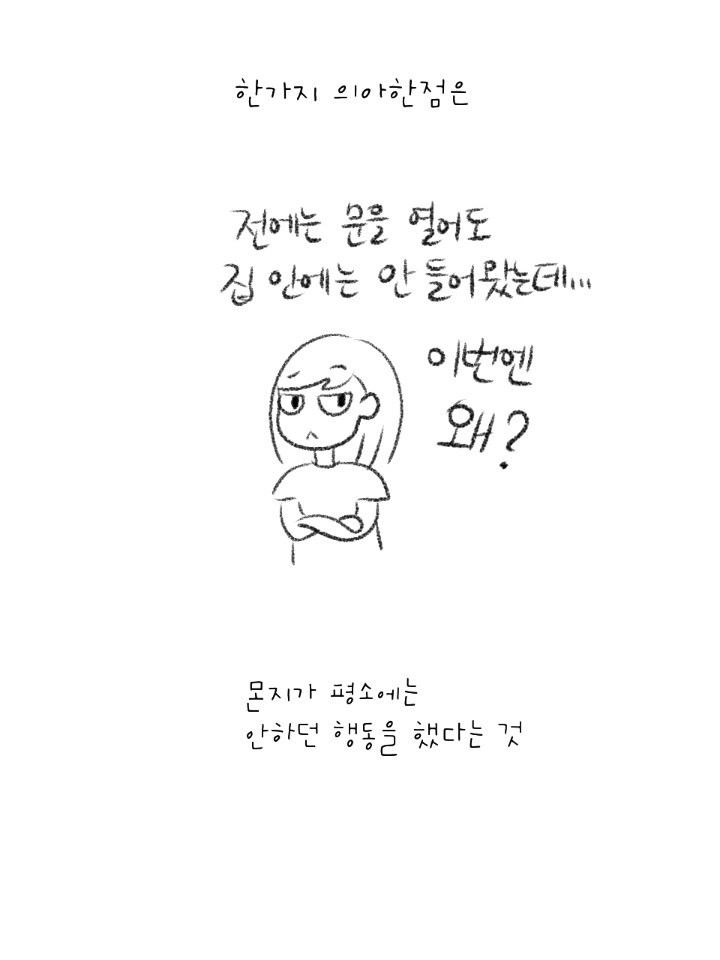 한가지 의아한점은
전에는 문을 열어도
집 안에는 안 들어왔는데...
이번엔
왜?
몬지가 평소에는
안하던 행동을 했다는 것